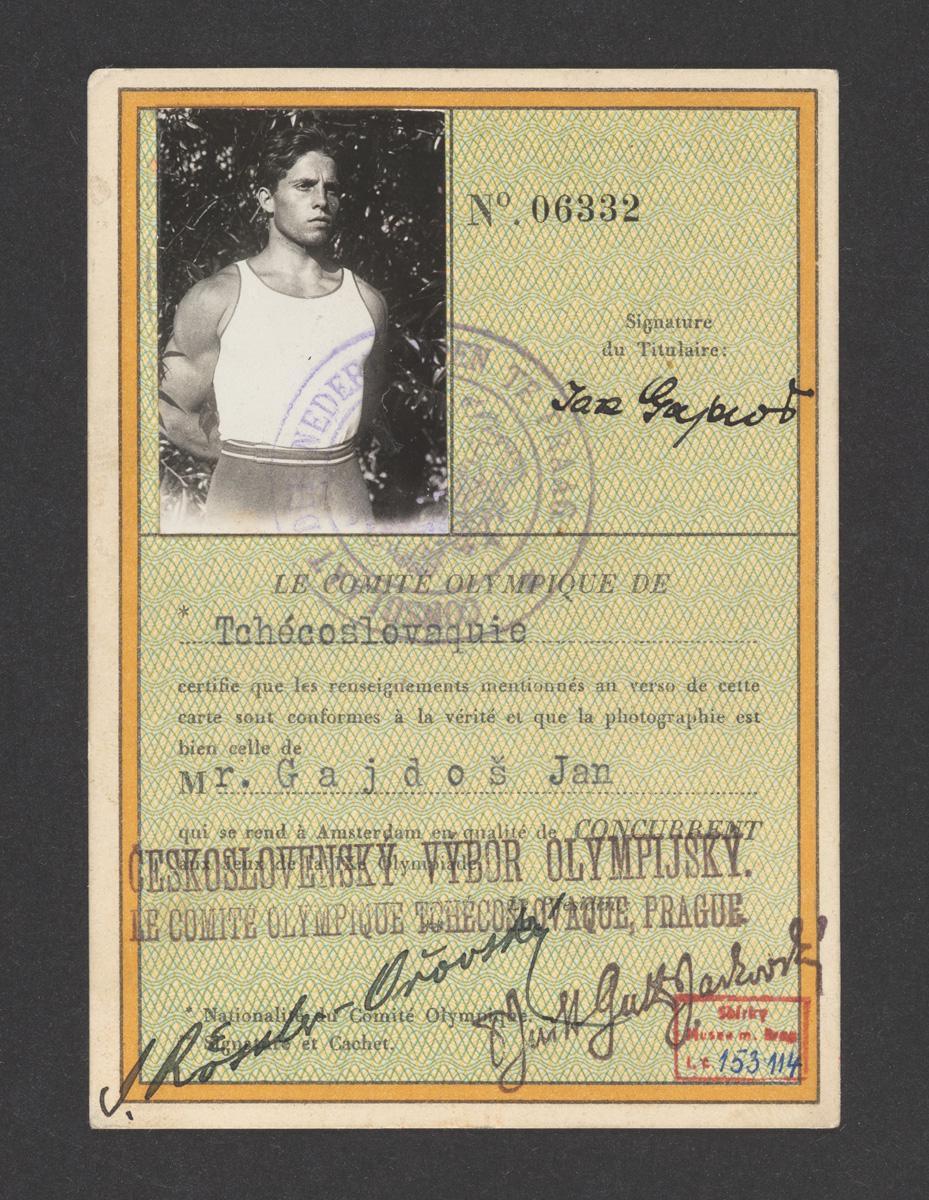 Nº. 06332
Signature
du Titulaire:
Jan Gajdoš
LE COMITÉ OLYMPIQUE DE
* Tchécoslovaquie
certifie que les renseignements mentionnés au verso de cette
carte sont conformes à la vérité et que la photographie est
bien celle de
Mr. Gajdoš Jan
qui se rend à Amsterdam en qualité de CONCURRENT
aux Jeux de la IXe Olympiade.
ČESKOSLOVENSKÝ VÝBOR OLYMPIJSKÝ.
Le Président
LE COMITÉ OLYMPIQUE TCHÉCOSLOVAQUE, PRAGUE.
J Rössler-Ořovský
* Nationalité du Comité Olympique.
Signature et Cachet.
Sbírky
Musea m. Brna
i. č. 153 114